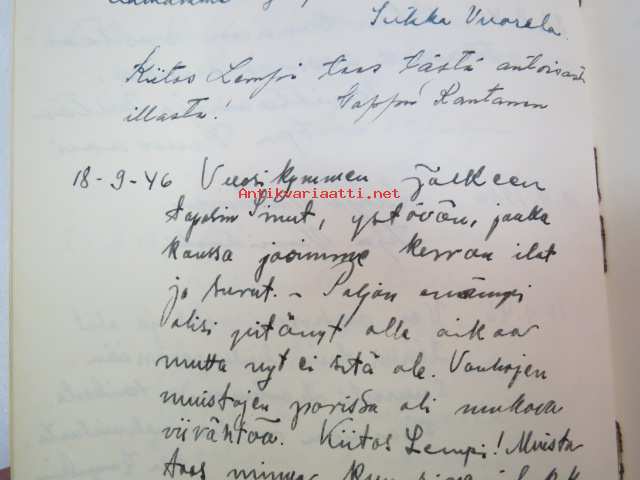 Sirkka Vuorela.
Kiitos Lempi taas tästä antoisasta
illasta! Seppo Rantanen
18-9-46 Vuosikymmen jälkeen
Antikvariaatti.net
tapasin Sinut, ystävän, jonka
kanssa jaoimme kerran ilot
ja surut. – Paljon enämpi
olisi pitänyt olla aikaa
mutta nyt ei sitä ole. Vanhojen
muistojen parissa oli mukava
viivähtää. Kiitos Lempi! Muista
taas minua kun